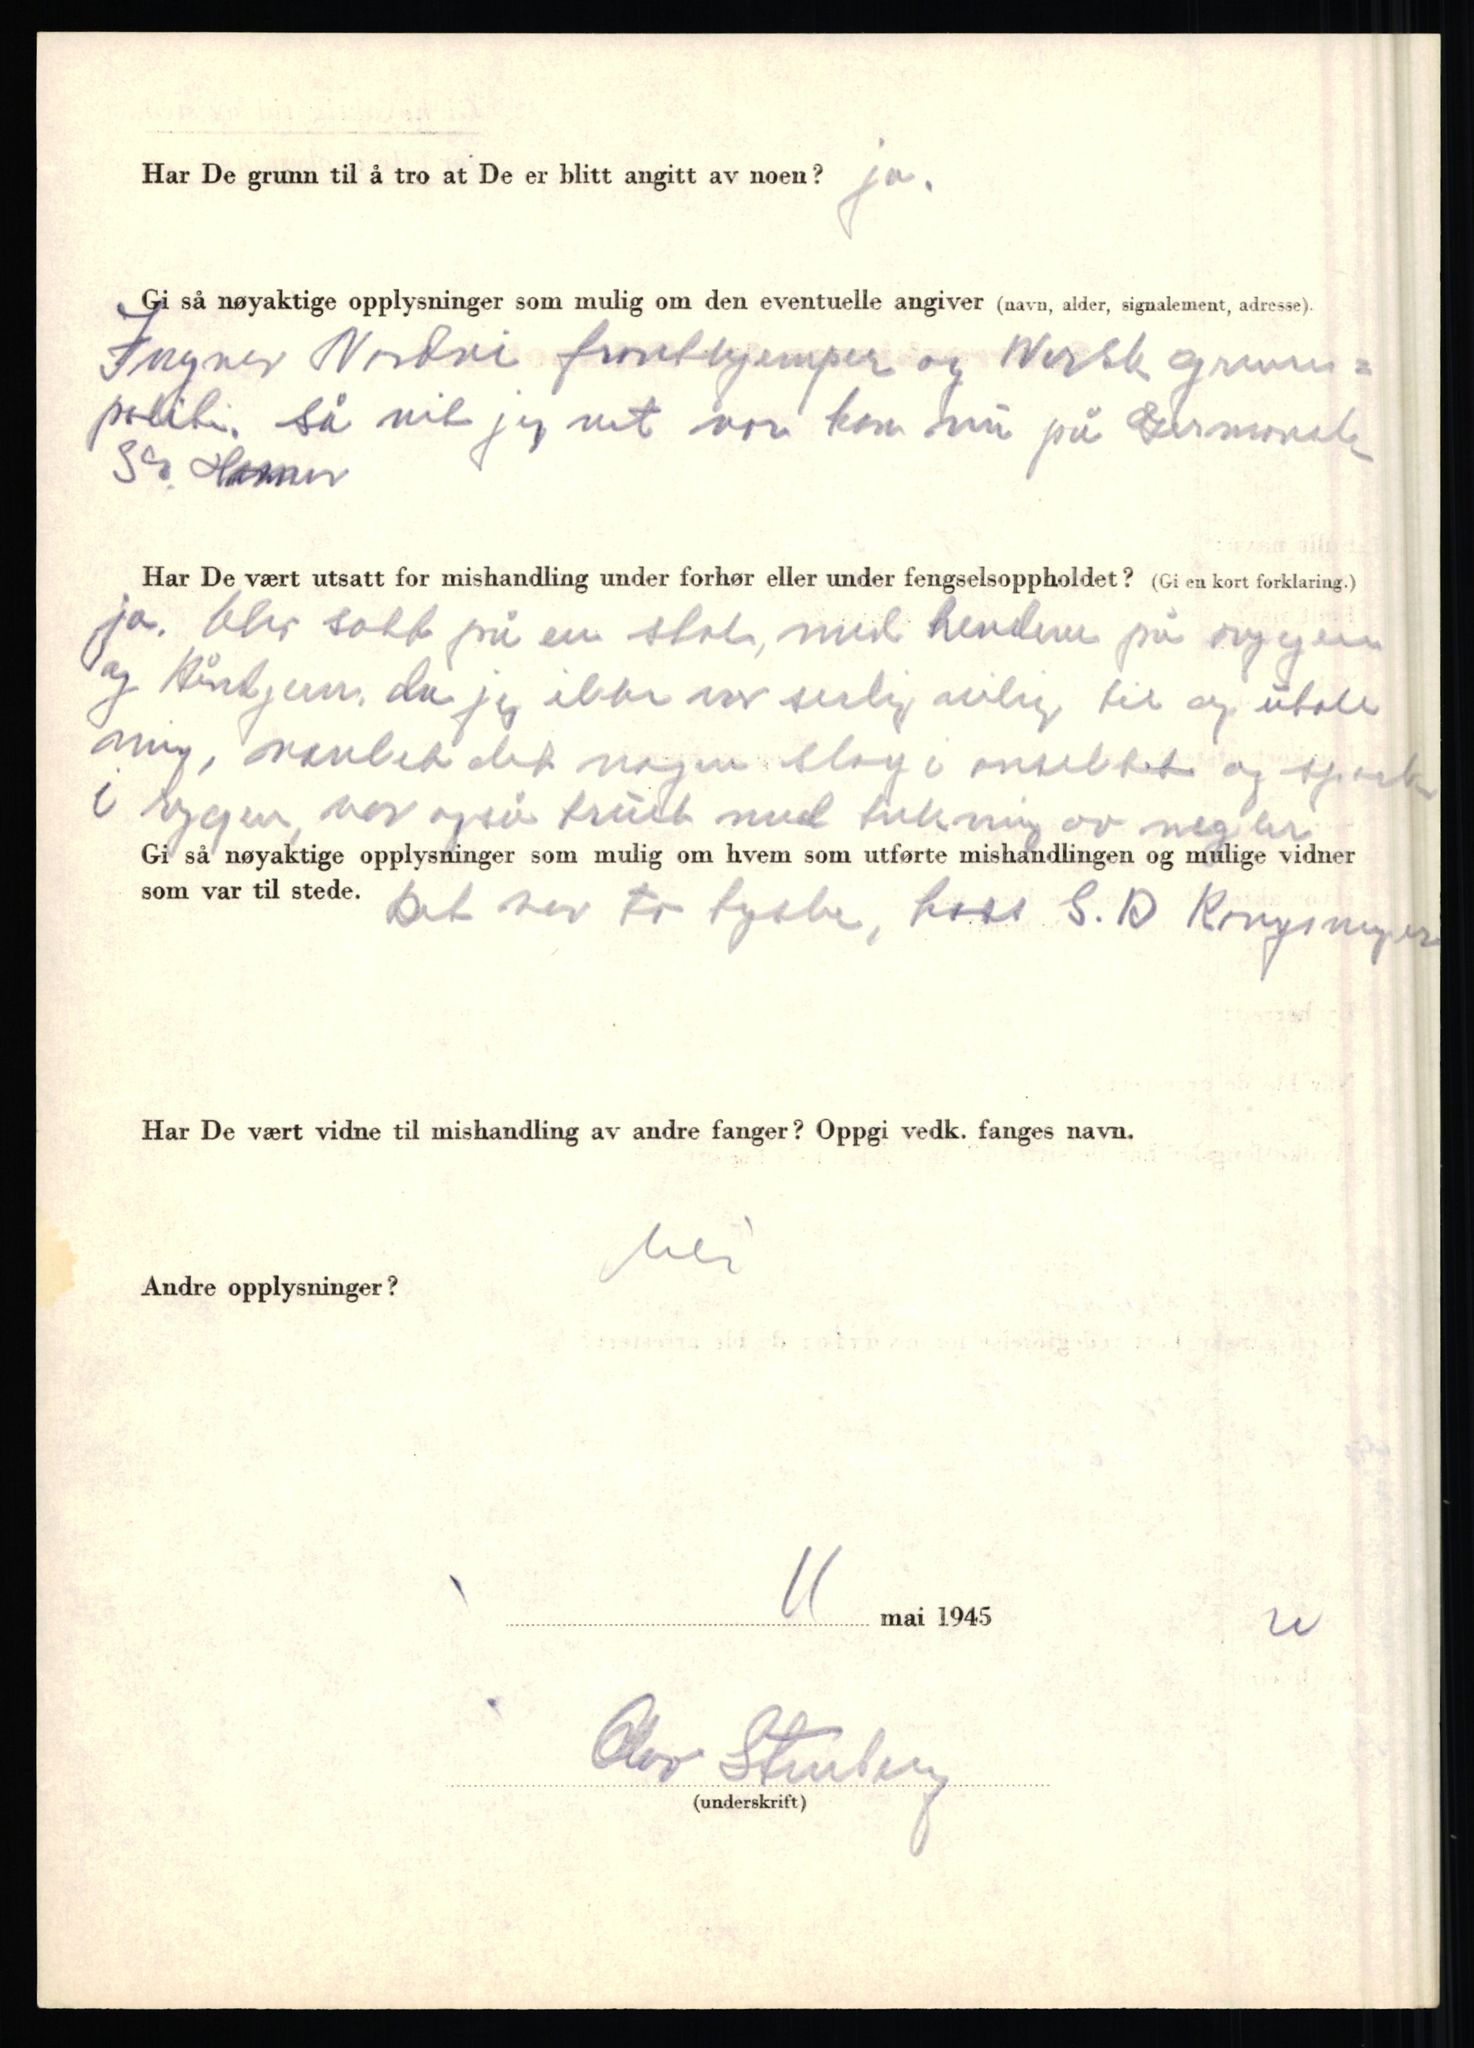 Har De grunn til å tro at De er blitt angitt av noen? ja.
Gi så nøyaktige opplysninger som mulig om den eventuelle angiver (navn, alder, signalement, adresse).
Yngver Nordvi frontkjemper og Norsk grense=
politi. så vit jeg vet var han nu på Germansk
SS.
Har De vært utsatt for mishandling under forhør eller under fengselsoppholdet? (Gi en kort forklaring.)
ja. blev satt på en stol, med hendene på ryggen
og Håntjern. da jeg ikke var serlig villig til og utale
mig, vanket det nogen slag i ansektet og spark
i ryggen, var også truet med tekning av negler
Gi så nøyaktige opplysninger som mulig om hvem som utførte mishandlingen og mulige vidner
som var til stede. Det var to tyske, hoss S.D Kongsvinger
Har De vært vidne til mishandling av andre fanger? Oppgi vedk. fanges navn.
Nei
Andre opplysninger?
11 mai 1945
Olav Stenberg
(underskrift)